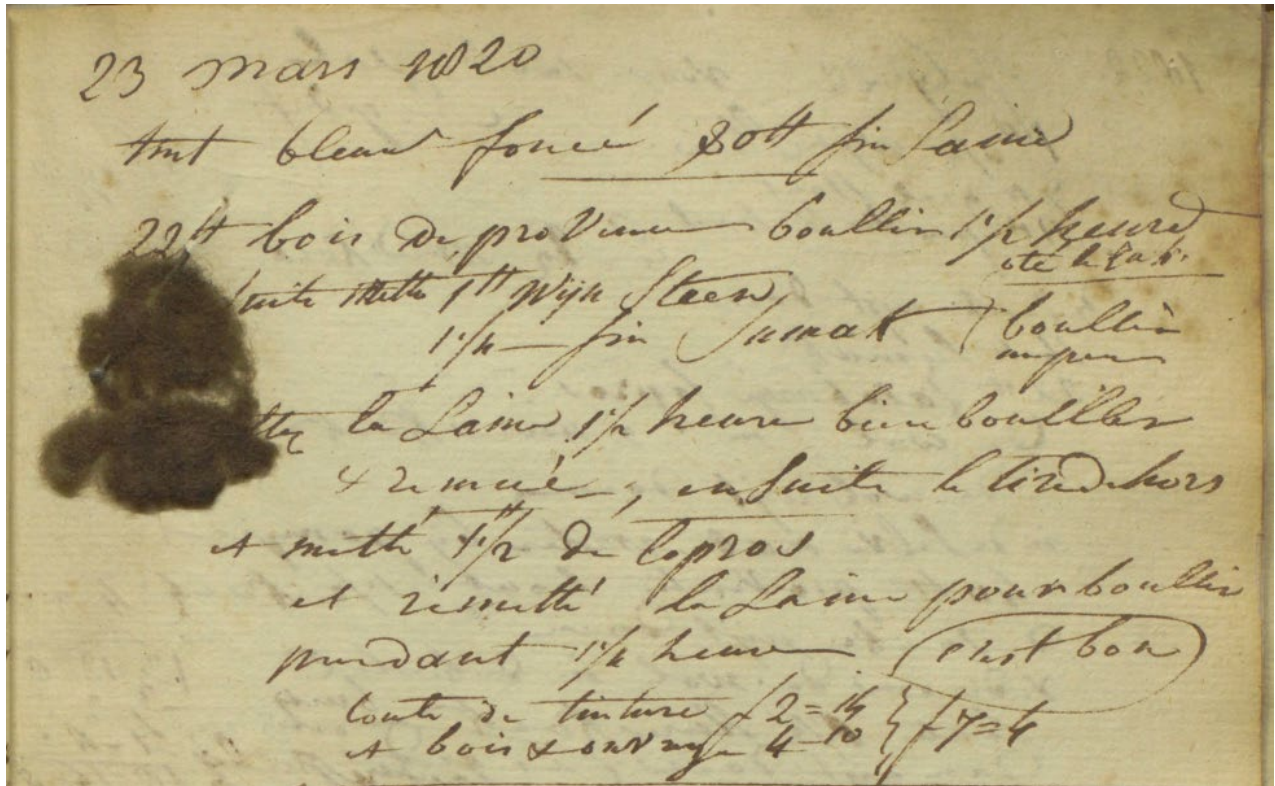 23 mars 1820
tint bleau foncé 80 tt fin Laine
22 tt bois de provence boullir 1 1/2 heure
ote le sak.
suite mette 1 tt wijn Steen
1 1/2 — fin Sumak boullir
un peu
la Laine 1 1/2 heure bien bouller
& remué, en Suite le tire dehors
et metté 1 1/2 de Copros
et remetté la Laine pour boullir
pendant 1 1/2 heure (c'est bon)
coute de tinture f 2=14
et bois & ouvrage 4–10 } f 7=4